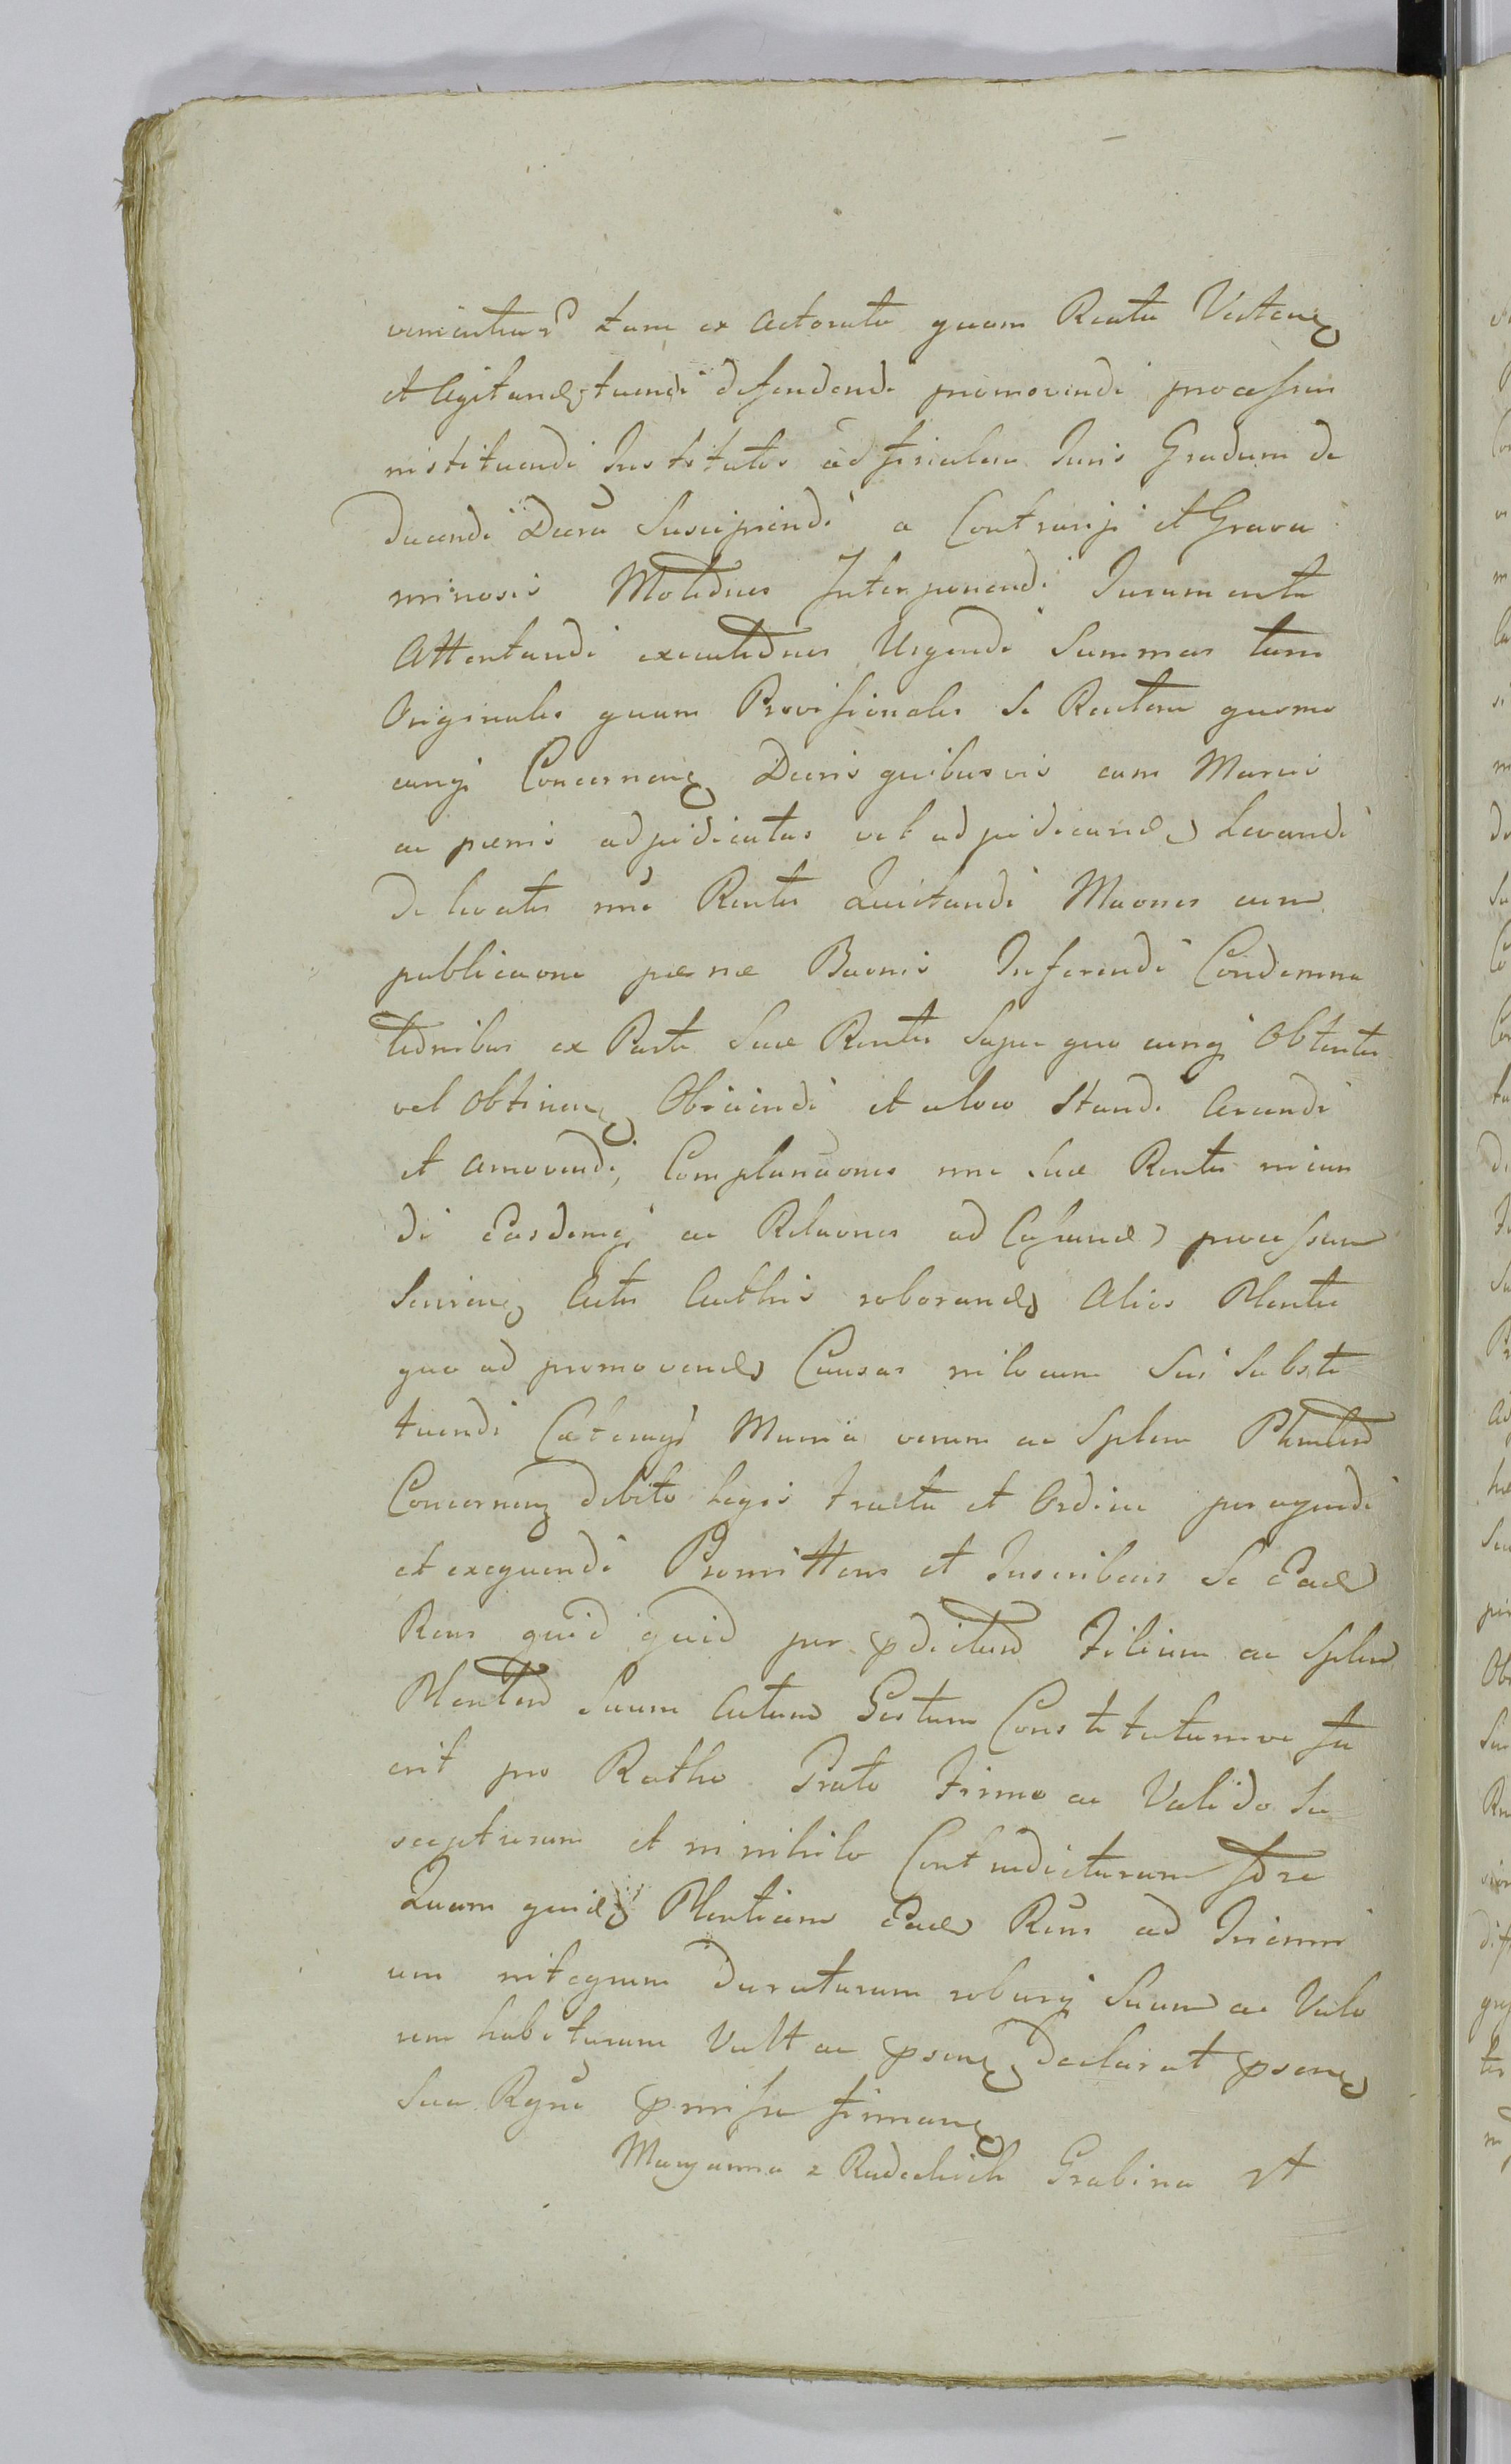 tam ex Actoratu quam Reatu
et Agitand tuendi defendendi promovendi processus
instituendi Institutos ad finalem Juris Gradum de
ducendi Decra Suscipiendi a Contrarijs et Grava
minosis Motiones Interponendi Juramenta
Attentandi executiones Urgendi Summas tam
Originales quam Provisionales Se Reatem quomo
cunqj Concernen Decris quibusvis cum
ac poenis adjudicatas vel adjudicand Levandi
de levatis nne Reatis Quietandi Maones cum
publicaone poenae Baonis Inferendi Condemna
tionibus ex Parte Suae Reatis Super quo cunqj Obtentis
vel Obtinen Obviandi et a loco Standi Arcendi
et amovendi, Complanaones nne Suae Reatis ineun
di Easdemqj ac Relaones ad Cassand processum
Servien Actis Authis roborand Alios Plentes
quo ad promovend Causas in locum Sui Substi
tuendi Munia verum ac Splem Plentem
Concernen debito Legis tractu et Ordine peragendi
et exequendi Promittens et Inscribens Se Ead
Rens quid quid per pdictum Filium ac Splem
Plentem Suum Actum Gestum Constitutumve fu
erit pro Ratho Grato Firmo ac Valido Su
scepturam et in nihilo Contradicturam fore
Quam quid Plentiam Ead Rens ad
um integrum Duraturam roburqj Suum ac Valo
rem habituram Vult ac psen Declarat psen
Sua Rgne pmissa firman
Maryanna z Radeckich Grabina